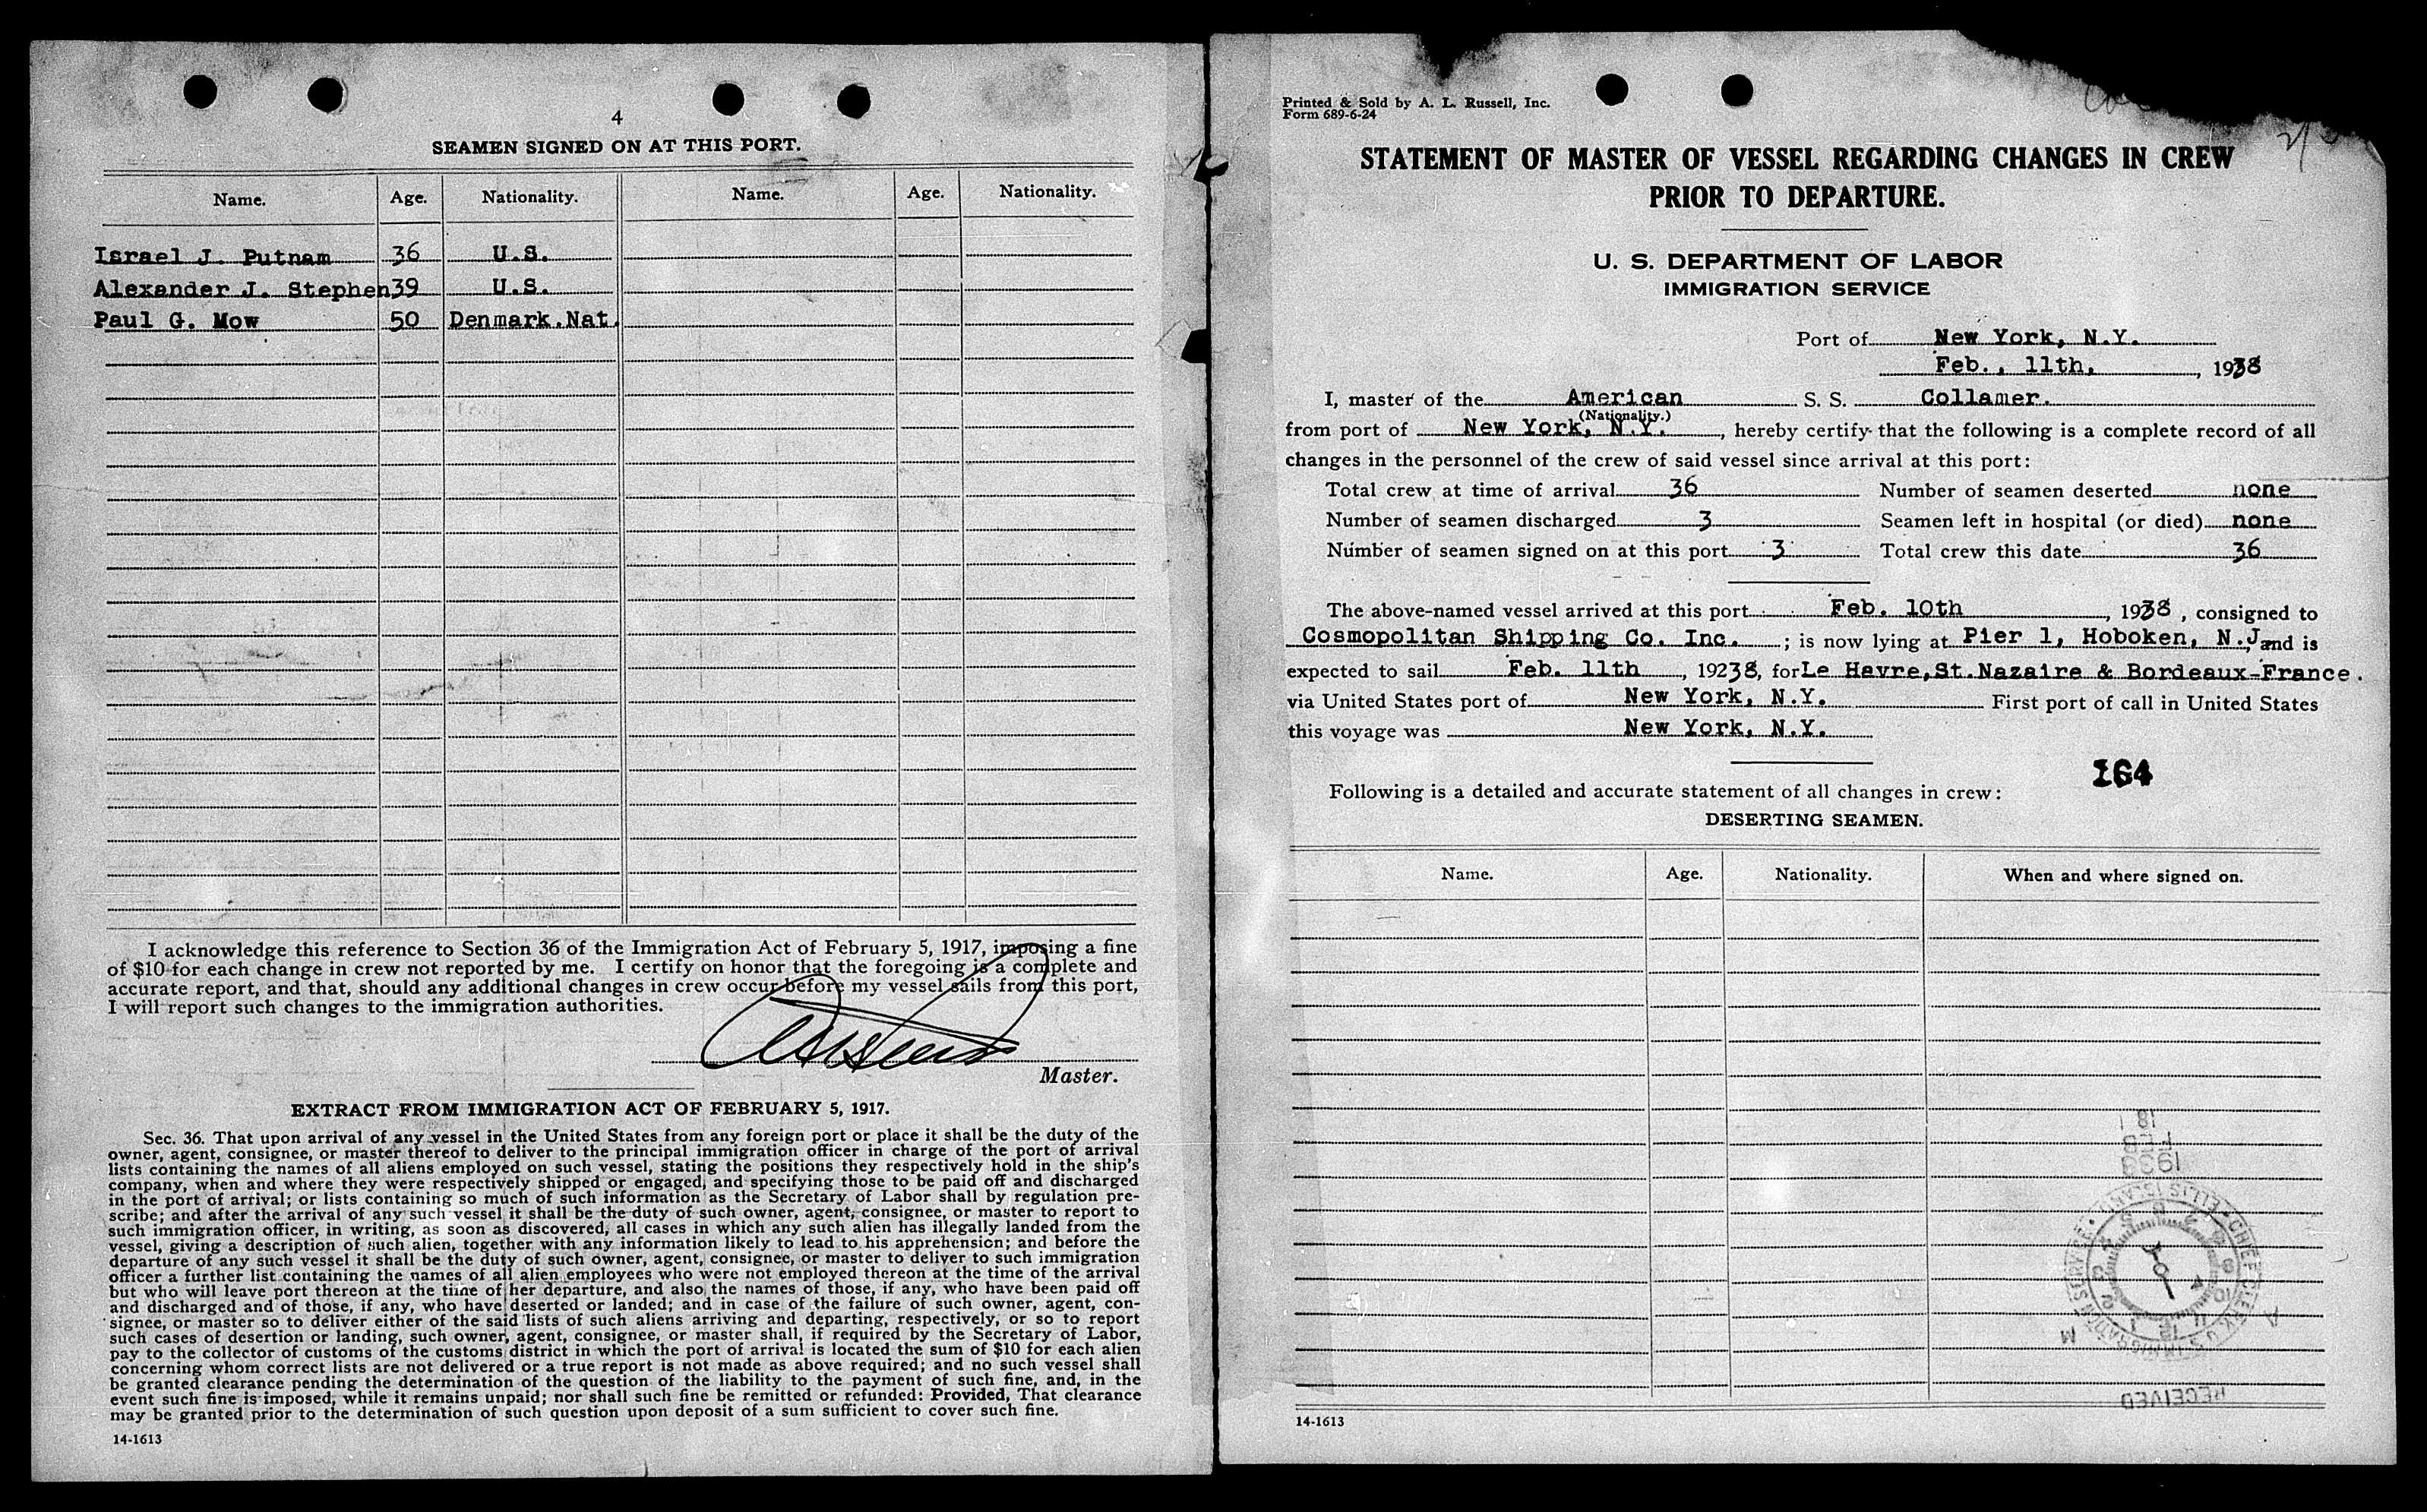 4
SEAMEN SIGNED ON AT THIS PORT.
Name. Age. Nationality. Name. Age. Nationality.
Israel J. Putnam 36 U.S.
Alexander J. Stephen 39 U.S.
Paul G. Mow 50 Denmark.Nat.
I acknowledge this reference to Section 36 of the Immigration Act of February 5, 1917, imposing a fine
of $10 for each change in crew not reported by me. I certify on honor that the foregoing is a complete and
accurate report, and that, should any additional changes in crew occur before my vessel sails from this port,
I will report such changes to the immigration authorities.
Master.
EXTRACT FROM IMMIGRATION ACT OF FEBRUARY 5, 1917.
Sec. 36. That upon arrival of any vessel in the United States from any foreign port or place it shall be the duty of the
owner, agent, consignee, or master thereof to deliver to the principal immigration officer in charge of the port of arrival
lists containing the names of all aliens employed on such vessel, stating the positions they respectively hold in the ship's
company, when and where they were respectively shipped or engaged, and specifying those to be paid off and discharged
in the port of arrival; or lists containing so much of such information as the Secretary of Labor shall by regulation pre-
scribe; and after the arrival of any such vessel it shall be the duty of such owner, agent, consignee, or master to report to
such immigration officer, in writing, as soon as discovered, all cases in which any such alien has illegally landed from the
vessel, giving a description of such alien, together with any information likely to lead to his apprehension; and before the
departure of any such vessel it shall be the duty of such owner, agent, consignee, or master to deliver to such immigration
officer a further list containing the names of all alien employees who were not employed thereon at the time of the arrival
but who will leave port thereon at the time of her departure, and also the names of those, if any, who have been paid off
and discharged and of those, if any, who have deserted or landed; and in case of the failure of such owner, agent, con-
signee, or master so to deliver either of the said lists of such aliens arriving and departing, respectively, or so to report
such cases of desertion or landing, such owner, agent, consignee, or master shall, if required by the Secretary of Labor,
pay to the collector of customs of the customs district in which the port of arrival is located the sum of $10 for each alien
concerning whom correct lists are not delivered or a true report is not made as above required; and no such vessel shall
be granted clearance pending the determination of the question of the liability to the payment of such fine, and, in the
event such fine is imposed, while it remains unpaid; nor shall such fine be remitted or refunded: Provided, That clearance
may be granted prior to the determination of such question upon deposit of a sum sufficient to cover such fine.
14-1613
Printed & Sold by A. L. Russell, Inc.
Form 689-6-24
STATEMENT OF MASTER OF VESSEL REGARDING CHANGES IN CREW
PRIOR TO DEPARTURE.
U. S. DEPARTMENT OF LABOR
IMMIGRATION SERVICE
Port of New York, N.Y.
Feb., 11th, , 1938
I, master of the American S. S. Collamer.
(Nationality.)
from port of New York, N.Y. , hereby certify that the following is a complete record of all
changes in the personnel of the crew of said vessel since arrival at this port:
Total crew at time of arrival 36 Number of seamen deserted none
Number of seamen discharged 3 Seamen left in hospital (or died) none
Number of seamen signed on at this port 3 Total crew this date 36
The above-named vessel arrived at this port Feb. 10th , 1938 , consigned to
Cosmopolitan Shipping Co. Inc. ; is now lying at Pier 1, Hoboken, N.J, and is
expected to sail Feb. 11th , 19238, for Le Havre,St.Nazaire & Bordeaux-France.
via United States port of New York, N.Y. First port of call in United States
this voyage was New York, N.Y.
164
Following is a detailed and accurate statement of all changes in crew:
DESERTING SEAMEN.
Name. Age. Nationality. When and where signed on.
1938
FEB
RECEIVED
14-1613